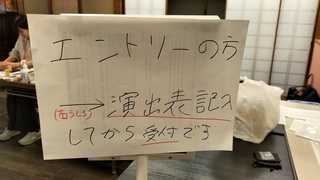 エントリーの方
→ 演出表記入
(右うしろ)
してから受付です